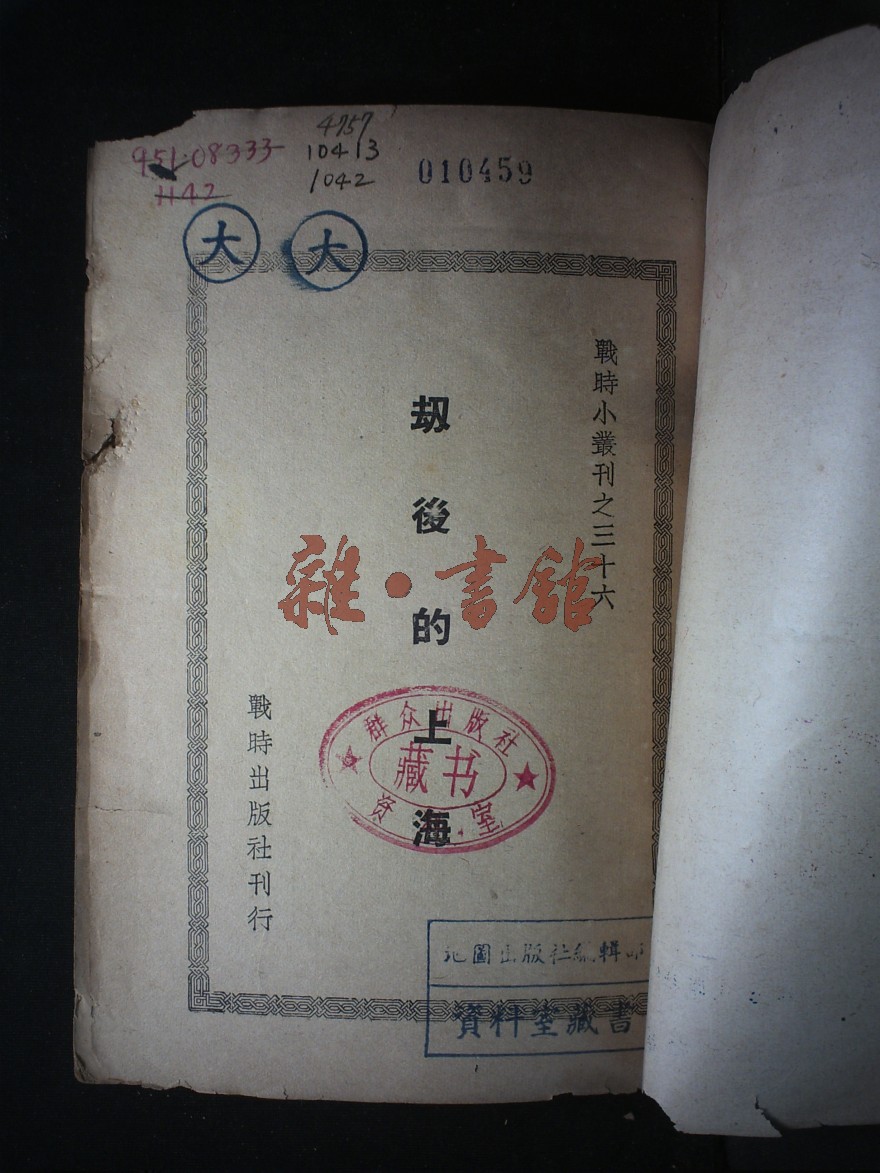 951·08333
1142
4757
10413
1042
010459
大
大
戰時小叢刊之三十六
劫後的上海
戰時出版社刊行
雜·書館
群众出版社
藏书
资料室
地圖出版社編輯部
資料室藏書